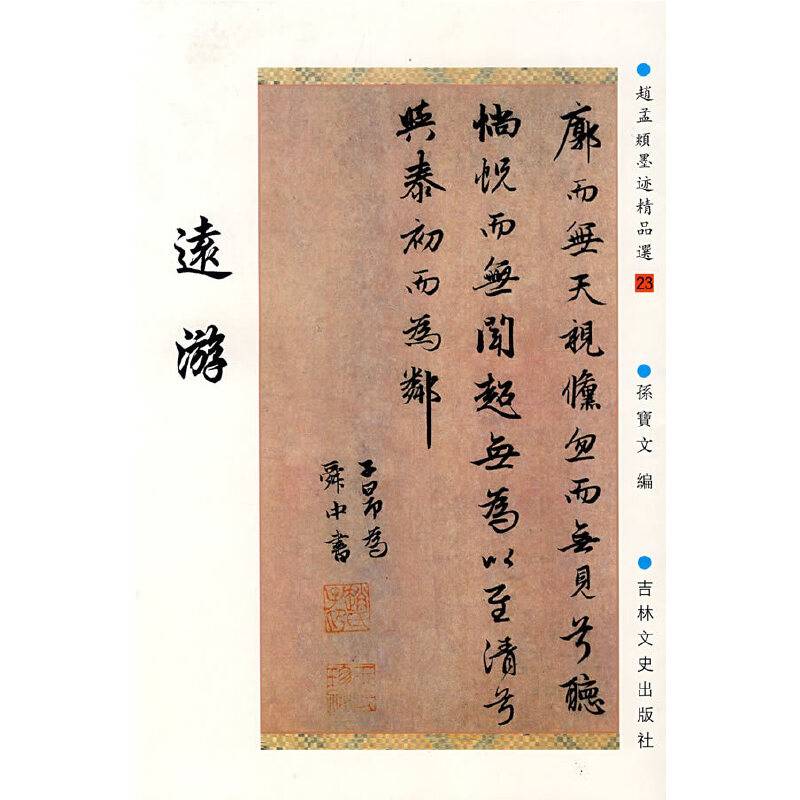 趙孟頫墨迹精品選 23
孫寶文 編
吉林文史出版社
廓而無天視儵忽而無見兮聽
惝怳而無聞超無為以至清兮
與泰初而為鄰
子昂為
舜中書
趙氏子昂
遠游